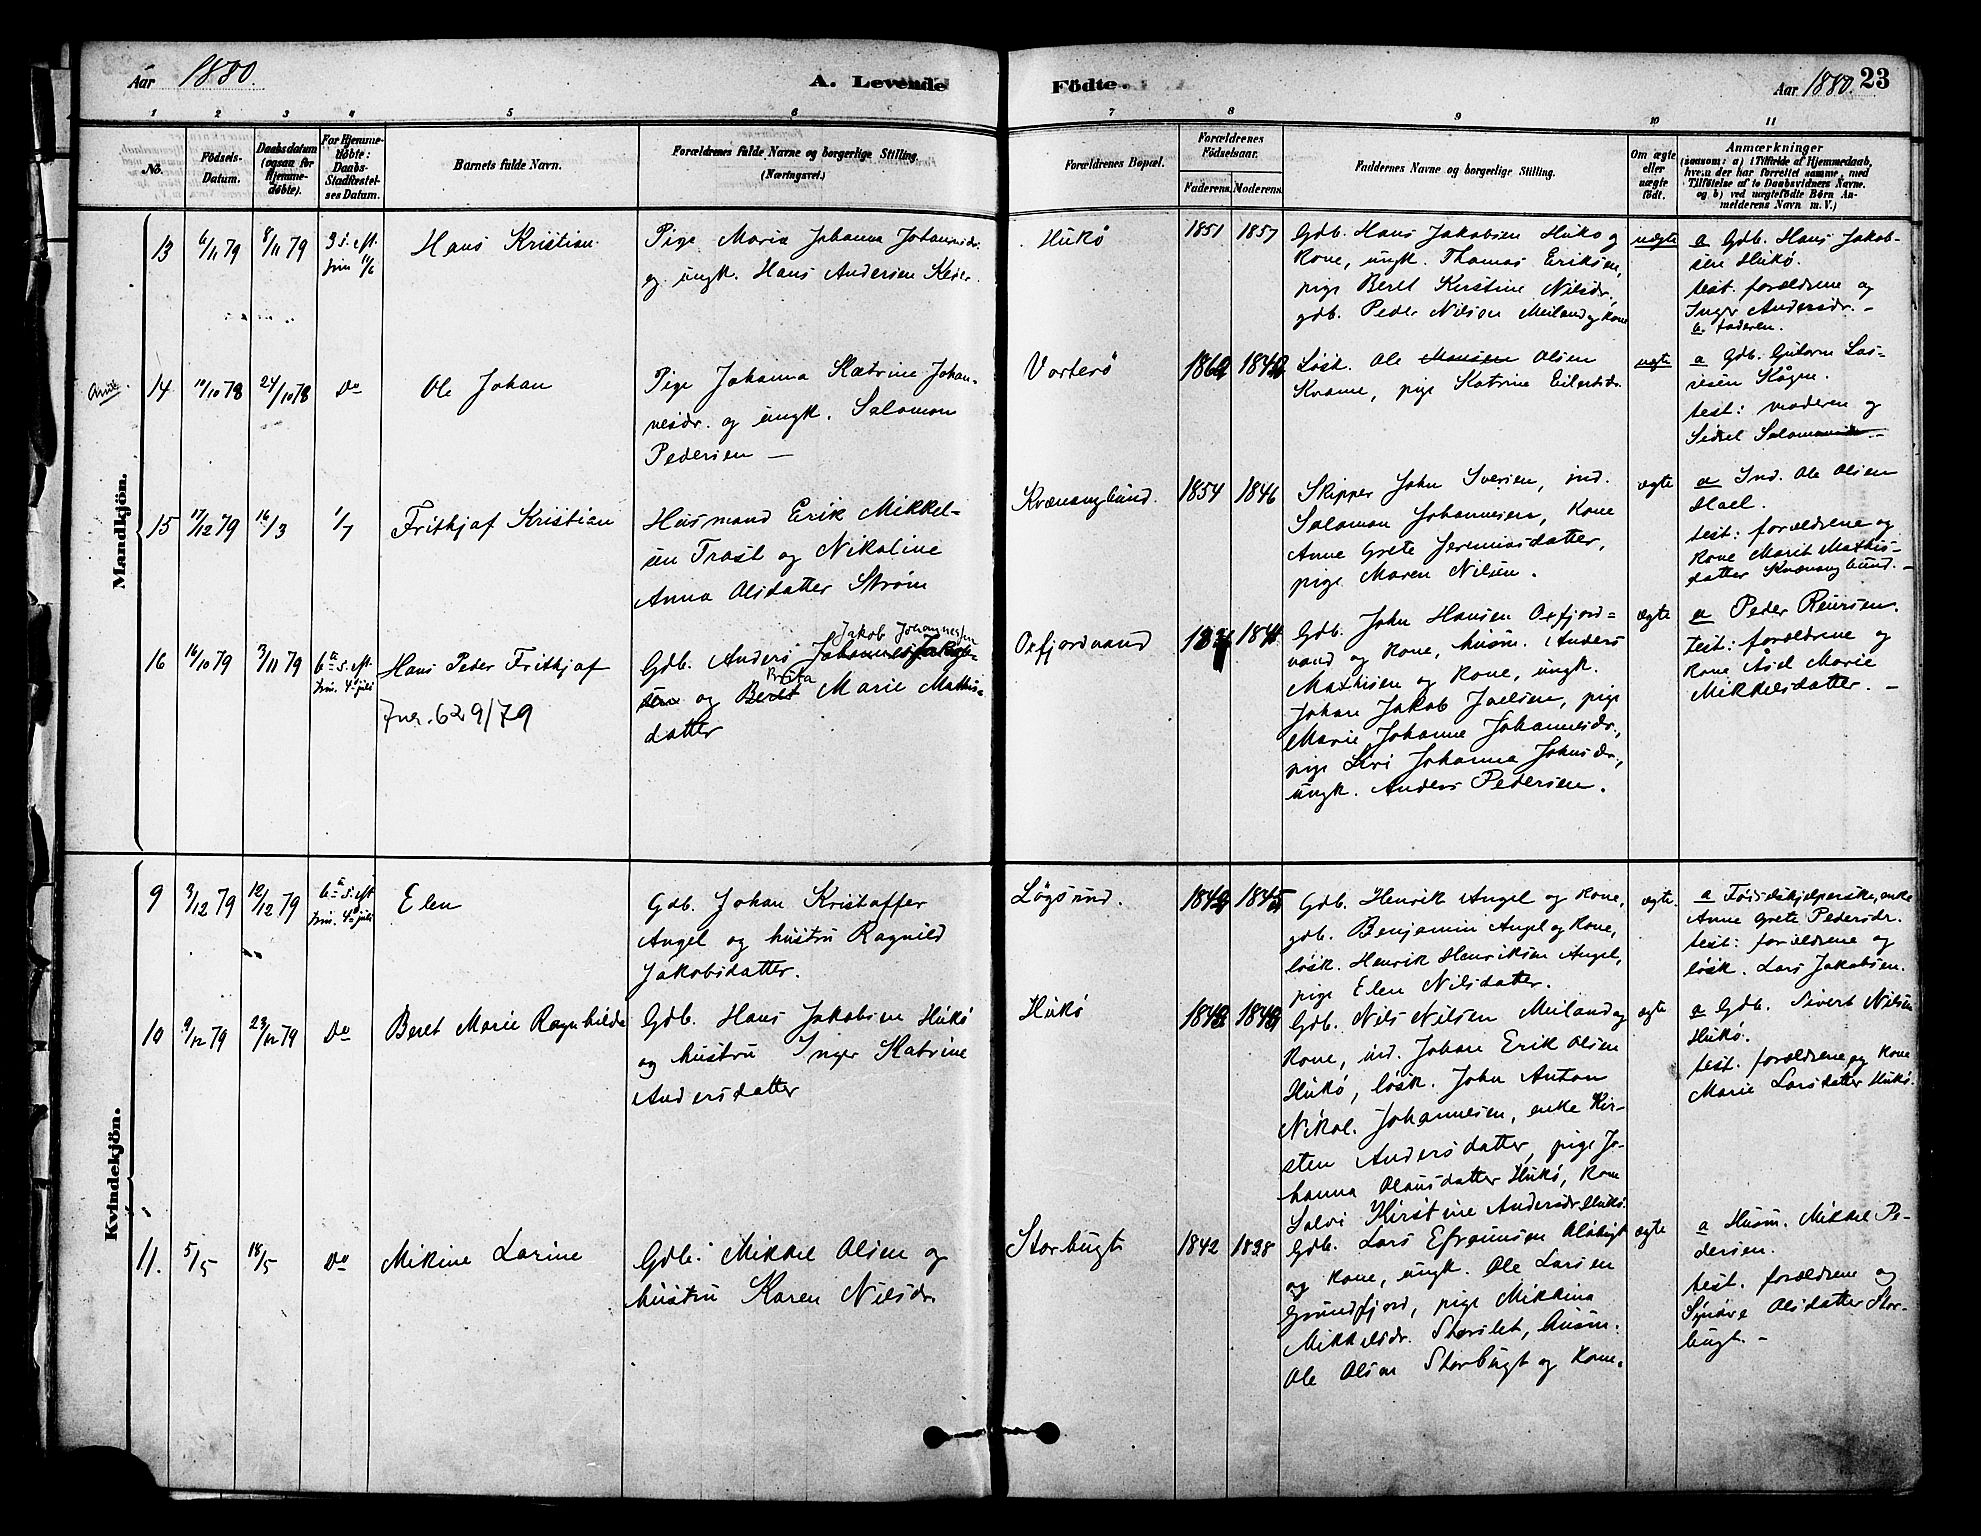 Aar 1880.
A. Levende
Födte.
Aar 1880. 23
1 2 3 4 5 6 7 8 9 10 11
No.
Födsels-Datum.
Daabsdatum (ogsaa for Hjemmedöbte).
For Hjemmedöbte: Daabs-Stadfæstelses Datum.
Barnets fulde Navn.
Forældrenes fulde Navne og borgerlige Stilling. (Næringsvei.)
Forældrenes Bopæl.
Forældrenes Födselsaar.
Faderens. Moderens.
Faddernes Navne og borgerlige Stilling.
Om ægte eller uægte födt.
Anmærkninger
(saasom: a) i Tilfælde af Hjemmedaab,
hvem der har forrettet samme, med
Tilföielse af to Daabsvidners Navne.
og b) ved uægtefödte Börn Anmelderens Navn m. V.)
Mandkjön.
13 6/11 79 8/11 79 3 s. eft. trin.
Hans Kristian
Pige Maria Johanna Johannesdr.
og ungk. Hans Andersen
Hukø
1851 1857
Gdb. Hans Jakobsen Hukø og
Kone, ungk. Thomas Eriksen,
pige Beret Kirstine Nilsdr,
gdb. Peder Nilsen Meiland og Kone
uægte
a Gdb. Hans Jakobsen
Hukø.
test. forældrene og
Inger Andersdr. -
b. faderen.
14 /10 78 24/10 78 Do
Ole Johan
Pige Johanna Katrine Johannesdr.
og ungk. Salomon
Pedersen —
Vorterø
Løsk. Ole Olsen
Kvame, pige Katrine Eilertsdr.
uægte
a Gdb.
test: moderen og
Sidsel
15 17/12 79 16/3 1/7
Frithjof Kristian
Husmand Erik Mikkelsen
Trast og Nikoline
Anna Olsdatter Strøm
Kvænangbund.
1854 1846
Skipper John Iversen, ind.
Salomon Johannesen, Kone
Anne Grete Jeremiasdatter,
pige Maren Nilsen.
ægte
a Ind. Ole Olsen
test: forældrene og
Kone Marit Mathisdatter
Kvænangbund. -
16 16/10 79 3/11 79 6te s. eft. trin. 4de juli
Hans Peder Frithjof
Jnr. 629/79
Jakob Johannessen
Gdb. Anders
Brita
og Beret Marie Mathisdatter
Oxfjordvand
Gdb. John Hansen Oxfjordvand
og Kone, husm. Anders
Mathisen og Kone, ungk.
Johan Jakob Joelsen, pige
Marie Johanne Johannesdr.,
pige Siri Johanna Johnsdr.,
ungk. Anders Pedersen.
ægte
a Peder Reiersen.
test: forældrene og
Kone Åsel Marie
Mikkelsdatter. -
Kvindekjön.
9 3/12 79 12/12 79 6te s. eft. trin. 4de juli
Elen
Gdb. Johan Kristoffer
Angel og hustru Ragnild
Jakobsdatter.
Løgsund.
Gdb. Henrik Angel og Kone,
gdb. Benjamin Angel og Kone,
løsk. Henrik Henriksen Angel,
pige Elen Nilsdatter.
ægte.
a Fødselshjelperske, enke
Anne Grete Pedersdr.
test: forældrene og
løsk. Lars Jakobsen.
10 9/12 79 23/12 79 Do
Beret Marie Ragnhilda
Gdb. Hans Jakobsen Hukø
og hustru Inger Katrine
Andersdatter
Hukø
Gdb. Nils Nilsen Meiland og
Kone, ind. Johan Erik Olsen
Hukø, løsk. John Anton
Nikol. Johannesen, enke Kirsten
Andersdatter, pige Johanna
Olausdatter Hukø, Kone
Kirstine Andersdr. Hukø.
ægte
a Gdb. Sivert Nilsen
Hukø.
test. forældrene og Kone
Marie Larsdatter Hukø.
11. 5/5 18/5 Do
Mikine Larine
Gdb. Mikkel Olsen og
hustru Karen Nilsdr.
Storbugt
1842 1838
Gdb. Lars Efraimsen
og Kone, ungk. Ole Larsen
Grundfjord, pige Mikkina
Mikkelsdr. Storslet, husm.
Ole Olsen Storbugt og Kone.
ægte
a Husm. Mikkel Pedersen.
test. forældrene og
Synøve Olsdatter Storbugt. -